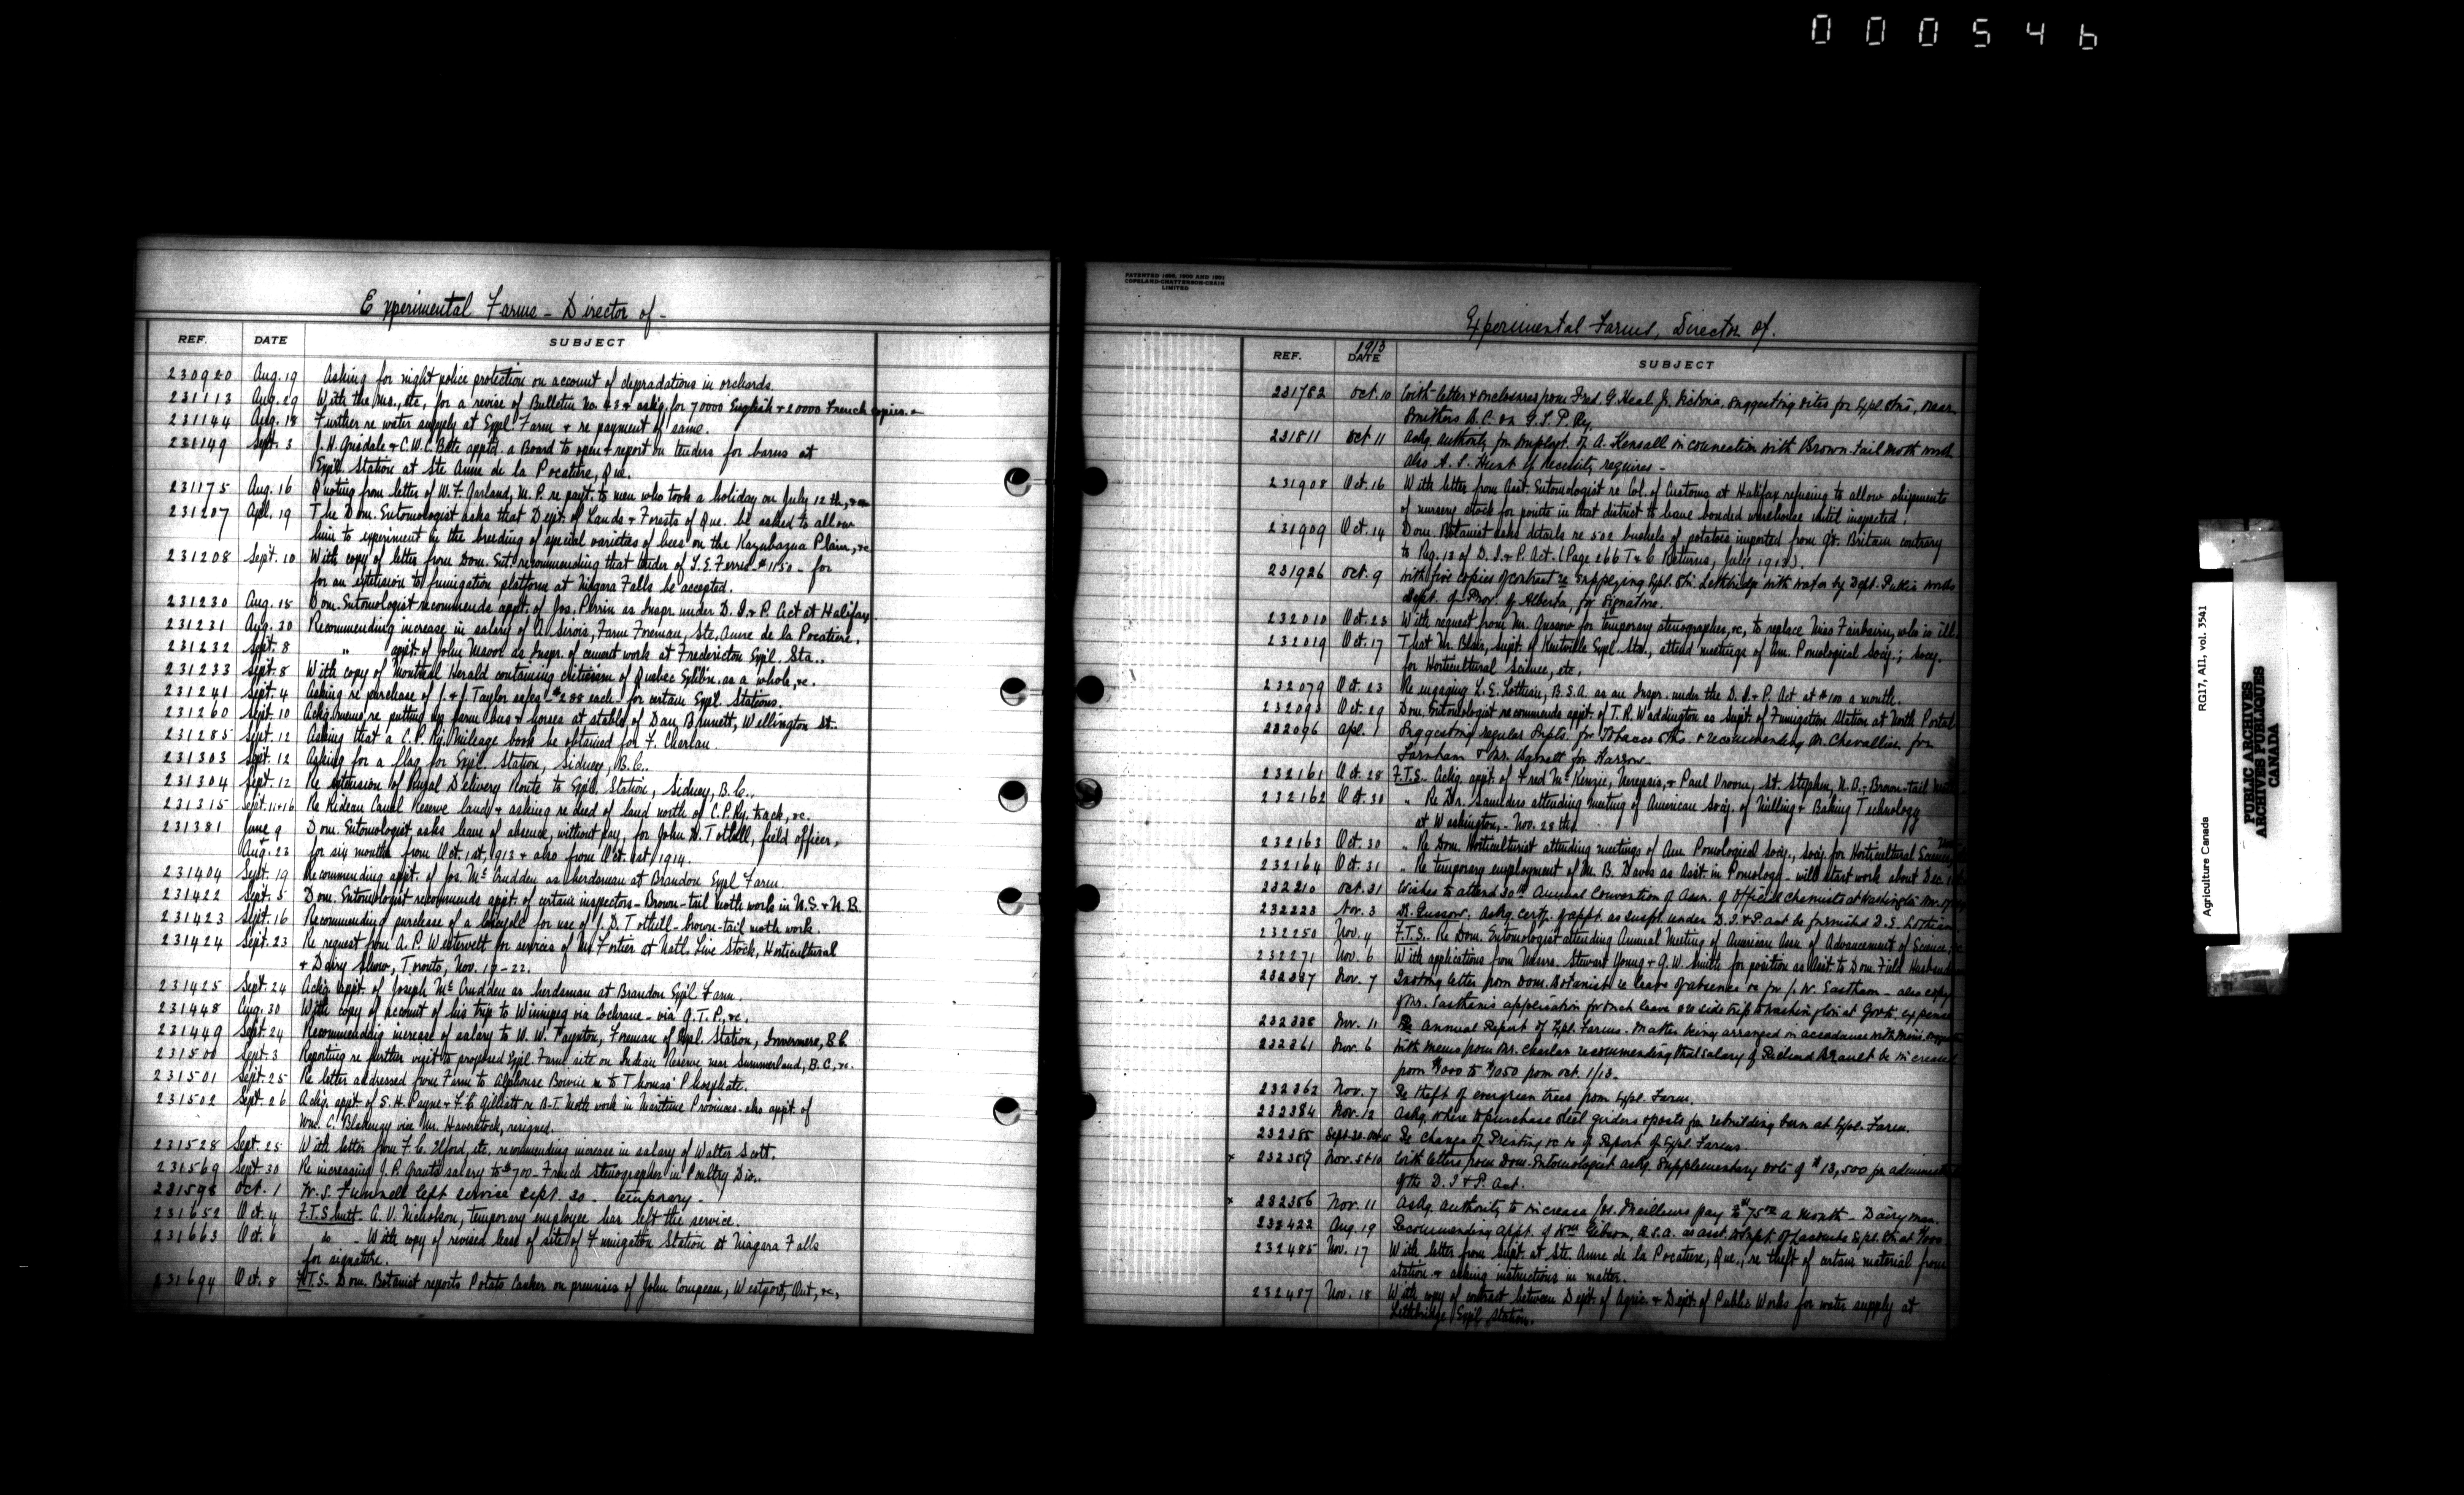 000546
Experimental Farms - Director of -
REF. DATE SUBJECT
230920 Aug. 19 Asking for night police protection on account of depradations in orchards.
231113 Aug. 29 With the ms., etc, for a revise of Bulletin No. 43 & askg. for 70000 English & 20000 French copies.
231144 Aug. 18 Further re water supply at Expl Farm & re payment of same.
231149 Sept. 3 J. H. Grisdale & C. W. C. Bate apptd. a Board to open & report on tenders for barns at
Exp'l. Station at Ste Anne de la Pocatiere, Que.
231175 Aug. 16 Quoting from letter of W. F. Garland, M.P. re paym't. to men who took a holiday on July 12th, &c
231207 Apl. 19 The Dom. Entomologist asks that Dept. of Lands & Forests of Que. be asked to allow
him to experiment in the breeding of special varieties of bees on the Kazubazua Plain, &c
231208 Sept. 10 With copy of letter from Dom. Ent. recommending that tender of $1150 - for
for an extension to fumigation platform at Niagara Falls be accepted.
231230 Aug. 15 Dom. Entomologist recommends appt. of Jos. Perrin as Inspr. under D. I. & P. Act at Halifax
231231 Aug. 30 Recommending increase in salary of A. Sirois, Farm Foreman, Ste. Anne de la Pocatiere.
231232 Sept. 8 " appt. of John Mavor as Inspr. of cement work at Fredericton Expl. Sta..
231233 Sept. 8 With copy of Montreal Herald containing criticism of Quebec Exhbn. as a whole, &c.
231241 Sept. 4 Asking re purchase of J. & J. Taylor safes - $288 each - for certain Expl. Stations.
231260 Sept. 10 Askg. memo re putting up farm bus & horses at stable of Dan Brunett, Wellington St..
231285 Sept. 12 Asking that a C. P. Ry. Mileage book be obtained for F. Charlan.
231303 Sept. 12 Asking for a flag for Expl. Station, Sidney, B.C..
231304 Sept. 12 Re extension of Rural Delivery Route to Expl. Station, Sidney, B.C..
231315 Sept. 11 & 16 Re Rideau Canal Reserve lands & asking re deed of land north of C.P.Ry. track, &c.
231381 June 9 Dom. Entomologist asks leave of absence, without pay, for John D. Tothill, field officer,
Aug. 23 for six months from Oct. 1st, 1913 & also from Oct. 1st 1914.
231404 Sept. 19 Recommending appt. of Jos. McCrudden as herdsman at Brandon Expl Farm.
231422 Sept. 5 Dom. Entomologist recommends appt. of certain inspectors - Brown-tail moth work in N.S. & N.B.
231423 Sept. 16 Recommending purchase of a bicycle for use of J. D. Tothill - brown-tail moth work.
231424 Sept. 23 Re request from A. P. Westervelt for services of Mr. Fortier at Natl. Live Stock, Horticultural
& Dairy Show, Toronto, Nov. 17-22.
231425 Sept. 24 Askg. appt. of Joseph McCrudden as herdsman at Brandon Expl. Farm.
231448 Aug. 30 With copy of account of his trip to Winnipeg via Cochrane - via G. T. P., &c.
231449 Sept. 24 Recommending increase of salary to W. W. Paynton, Foreman of Expl. Station, Invermere, B.C.
231500 Sept. 3 Reporting re further visit to proposed Expl. Farm site on Indian Reserve near Summerland, B.C., &c.
231501 Sept. 25 Re letter addressed from Farm to Alphonse Bowie re to Thomas' Phosphate.
231502 Sept. 26 Askg. appt. of S. H. Payne & F. C. Gilliatt re B-T. Moth work in Maritime Provinces. also appt. of
Wm. C. Blakeney vice Mr. Haverstock, resigned.
231528 Sept. 25 With letter from F. C. Elford, etc, recommending increase in salary of Walter Scott.
231569 Sept. 30 Re increasing J. P. Grant's salary to $700 - French stenographer in Poultry Div..
231598 Oct. 1 W. S. Fummell left service Sept. 30 - temporary -
231652 Oct. 4 F.T. Shutt. A. V. Nicholson, temporary employee has left the service.
231663 Oct. 6 do - With copy of revised lease of site of Fumigation Station at Niagara Falls
for signature.
231694 Oct. 8 F.T.S. Dom. Botanist reports Potato Canker on premises of John Compeau, Westport, Ont, &c,
PATENTED 1895, 1900 AND 1901
COPELAND-CHATTERSON-CRAIN
LIMITED
Experimental Farms, Director of.
REF. 1913 DATE SUBJECT
231782 Oct. 10 With letter & enclosures from Fred. G. Heal Jr. Victoria, suggesting sites for Expl. Stns, near
Smithers B.C. on G.T.P. Ry.
231811 Oct 11 Askg. authority for employt. of A. Kensall in connection with Brown-Tail Moth work
also A. S. Hunt if necessity requires -
231908 Oct. 16 With letter from Asst. Entomologist re Col. of Customs at Halifax refusing to allow shipments
of nursery stock for points in that district to leave bonded warehouse until inspected.
231909 Oct. 14 Dom. Botanist asks details re 502 bushels of potatoes imported from Gt. Britain contrary
to Reg. 12 of D. I. & P. Act. (Page 266 T & C Returns, July 1913).
231926 Oct. 9 With five copies of contract re supplying Expl. Stn. Lethbridge with water by Dept. Public Works
Dept. of Prov. of Alberta, for signature.
232010 Oct. 23 With request from Mr. Gussow for temporary stenographer, &c, to replace Miss Fairbairn, who is ill.
232019 Oct. 17 That Mr. Blair, Supt. of Kentville Expl. Sta., attend meetings of Am. Pomological Socy.; Socy.
for Horticultural Science, etc.
232079 Oct. 23 Re engaging L. E. Lothian, B.S.A. as an Inspr. under the D. I. & P. Act at $100 a month.
232093 Oct. 29 Dom. Entomologist recommends appt. of T. R. Waddington as Supt. of Fumigation Station at North Portal
232096 Apl. 1 Suggesting regular Supts. for Tobacco Stns. & recommending Dr. Chevallier for
Farnham & Mr. Barnett for Harrow.
232161 Oct. 28 F.T.S. Askg. appt. of Fred McKenzie, Nerepsis, & Paul Vroom, St. Stephen, N.B. - Brown-tail
232162 Oct. 30 " Re Dr. Saunders attending Meeting of American Socy. of Milling & Baking Technology
at Washington, - Nov. 28th
232163 Oct. 30 " Re Dom. Horticulturist attending meetings of Am. Pomological Socy., Socy. for Horticultural Science
232164 Oct. 31 " Re temporary employment of M. B. Davis as Asst. in Pomology - will start work about Dec. 1
232210 Oct. 31 Wishes to attend 30th Annual Convention of Assn. of Official Chemists at Washington Nov.
232223 Nov. 3 Dr. Gussow, askg. certf. of appt. as Inspr. under D. I. & P. act be furnished D. S. Lothian
232250 Nov. 4 F.T.S. Re Dom. Entomologist attending Annual Meeting of American Assn. of Advancement of Science,
232271 Nov. 6 With applications from Messrs. Stewart Young & G. W. Smith for position as Asst. to Dom. Field
232337 Nov. 7 letter from Dom. Botanist re leave of absence &c for J. W. Eastham - also copy
of Mr. Eastham's application for such leave one side trip to Washington at Govt. expense
232338 Nov. 11 Re Annual Report of Expl. Farms. Matter being arranged in accordance with
232361 Nov. 6 With memo from Mr. Charlan recommending that salary of be increased
from $1000 to $1050 from Oct. 1/13.
232362 Nov. 7 Re theft of evergreen trees from Expl. Farm.
232384 Nov. 12 Askg. where to purchase steel girders & posts for rebuilding barn at Expl. Farm.
232385 Sept. 20 - Re change of Printing &c re of Report of Expl. Farms.
x 232387 Nov. 5 & 10 With letters from Dom. Entomologist askg. supplementary vote of $13,500 for
of the D. I & P. act.
x 232386 Nov. 11 Askg. authority to increase Jos. Meilleurs pay to $75 a month - Dairy man.
232422 Aug. 19 Recommending appt. of Wm. Gibson, B.S.A. as asst. to Supt. of Expl. Stn. at
232485 Nov. 17 With letter from Supt. at Ste. Anne de la Pocatiere, Que., re theft of certain material from
station & asking instructions in matter.
232487 Nov. 18 With copy of contract between Dept. of Agric. & Dept. of Public Works for water supply at
Lethbridge Expl. Station.
Agriculture Canada RG17, AII, vol. 3541
PUBLIC ARCHIVES
ARCHIVES PUBLIQUES
CANADA